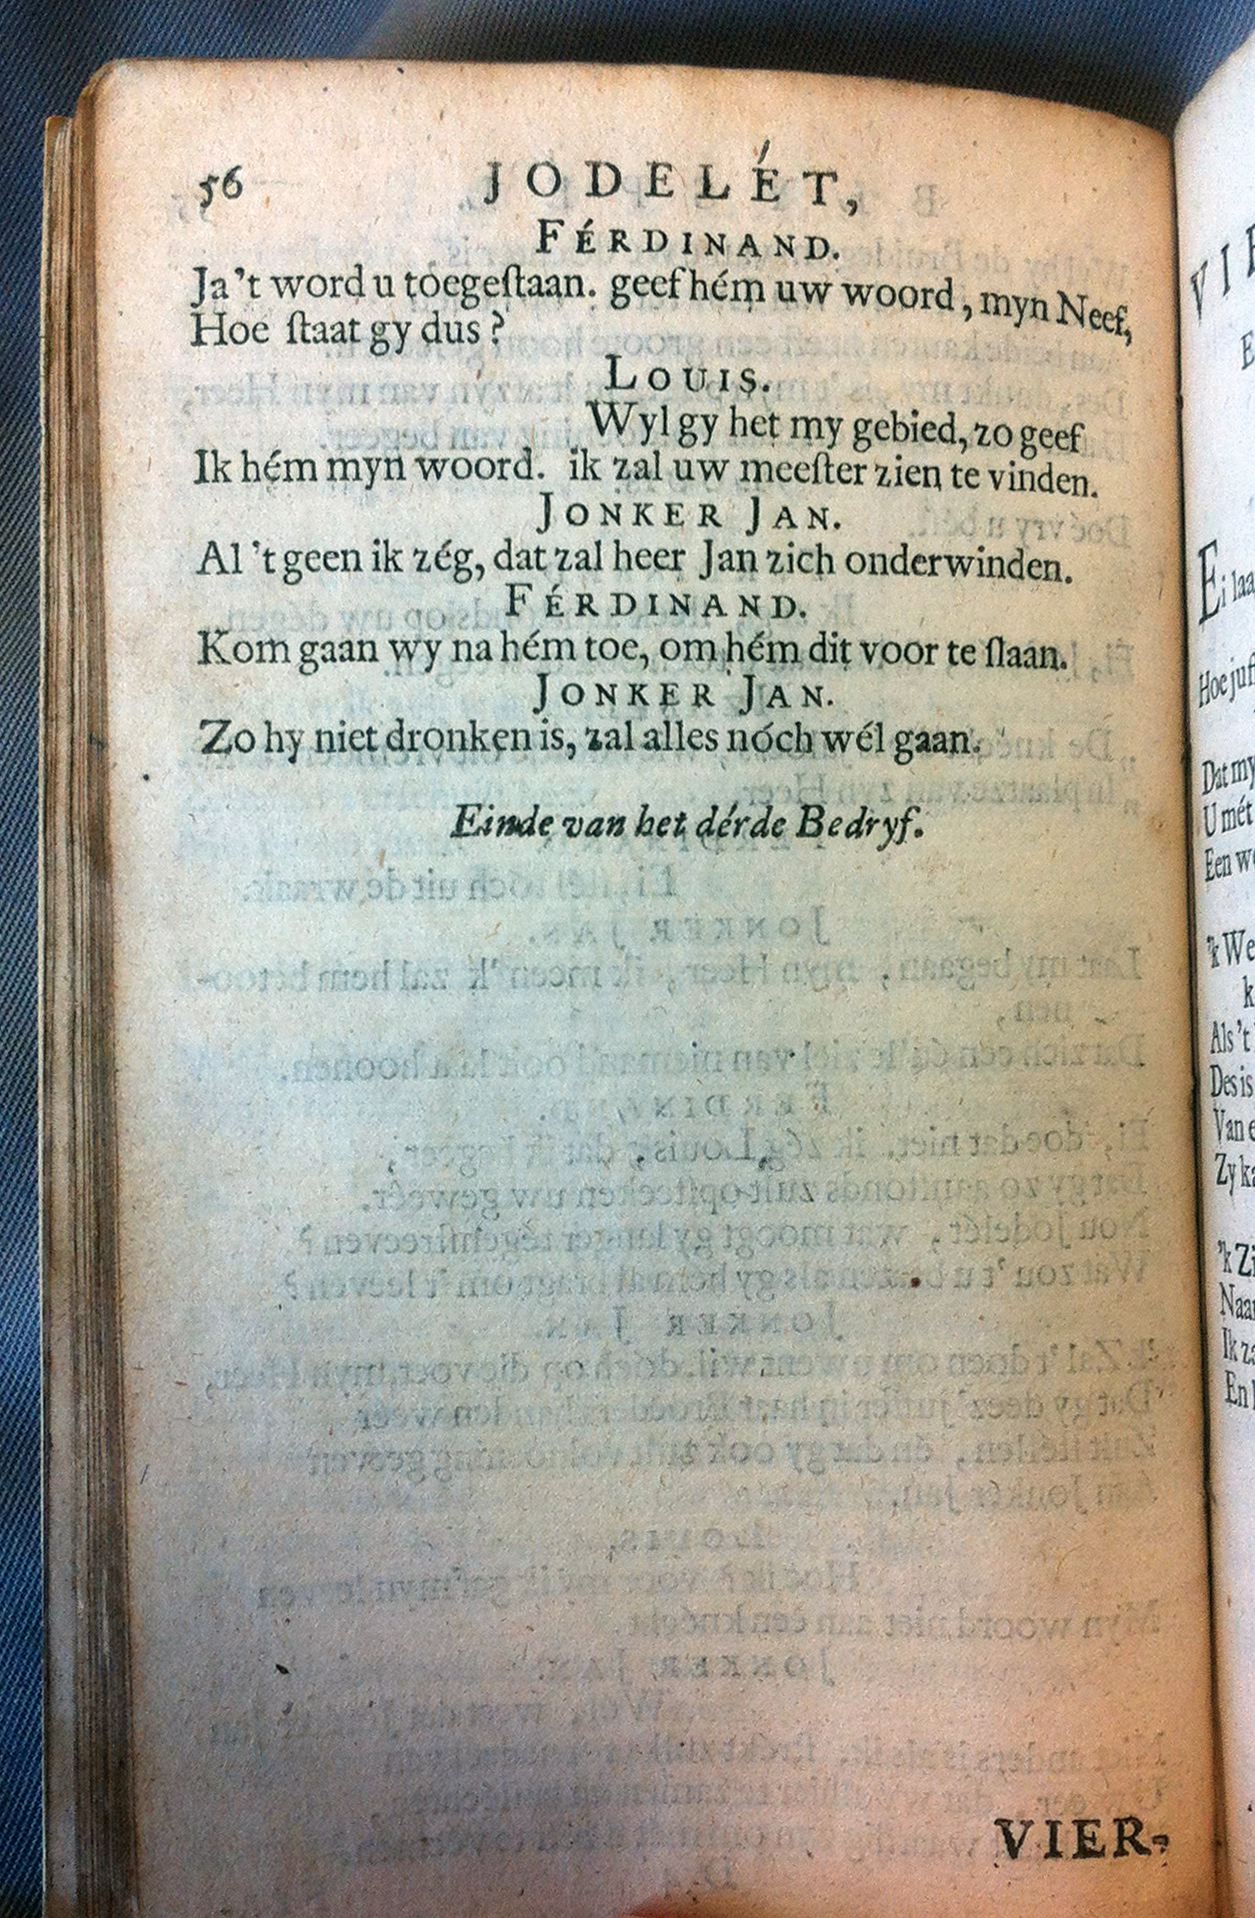 56 JODELÉT,
FÉRDINAND.
Ja 't word u toegeſtaan. geef hém uw woord, myn Neef,
Hoe ſtaat gy dus?
LOUIS.
Wyl gy het my gebied, zo geef
Ik hém myn woord. ik zal uw meeſter zien te vinden.
JONKER JAN.
Al 't geen ik zég, dat zal heer Jan zich onderwinden.
FÉRDINAND.
Kom gaan wy na hém toe, om hém dit voor te ſlaan.
JONKER JAN.
Zo hy niet dronken is, zal alles nóch wél gaan.
Einde van het dérde Bedryf.
VIER-
Ei laa
Hoe juf
Dat my
U mét
Een w
'k We
k
Als 't
Des is
Van e
Zy ka
'k Zi
Naa
Ik za
En